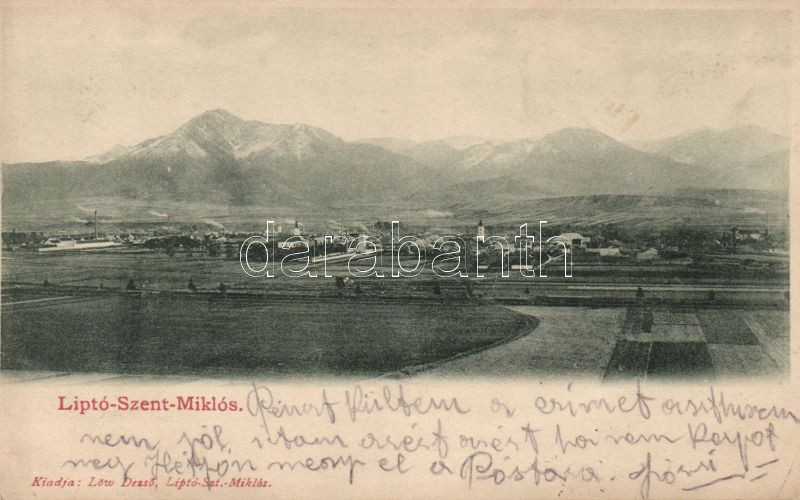 darabanth
Liptó-Szent-Miklós. Pénzt kültem a czimet asithisem
nem jól irtam azért azért ha nem kapot
meg Hetfőn meny el a Póstára. Józsi
Kiadja: Löw Dezső, Liptó-Szt.-Miklós.